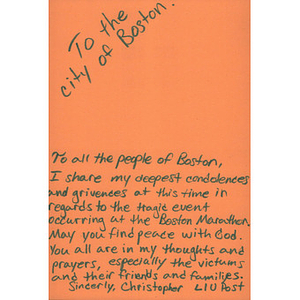 To the
city of Boston.
To all the people of Boston,
I share my deepest condolences
and grivences at this time in
regards to the tragic event
occurring at the Boston Marathon
May you find peace with God.
You all are in my thoughts and
prayers, especially the victims
and their friends and families.
Sincerly, Christopher LIU Post